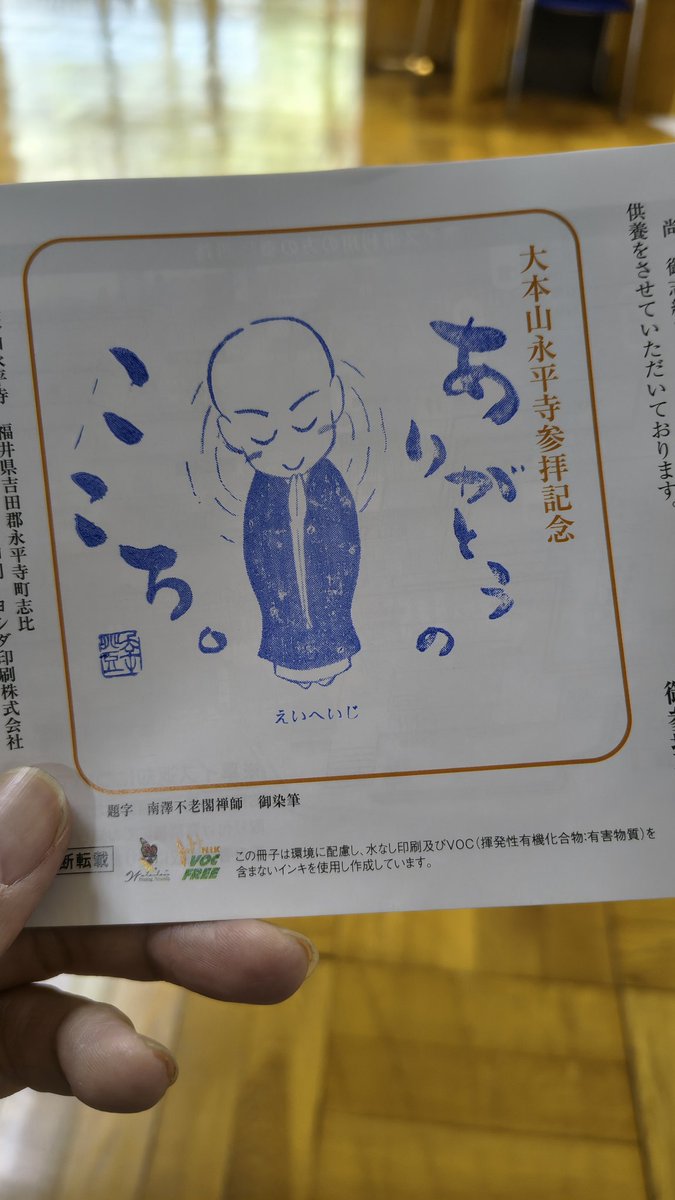 供養をさせていただいております。
大本山永平寺参拝記念
ありがとう
の
こころ。
えいへいじ
山永平寺 福井県吉田郡永平寺町志比
ヨシダ印刷株式会社
題字 南澤不老閣禅師 御染筆
断転載
NON VOC FREE
この冊子は環境に配慮し、水なし印刷及びVOC(揮発性有機化合物:有害物質)を
含まないインキを使用し作成しています。